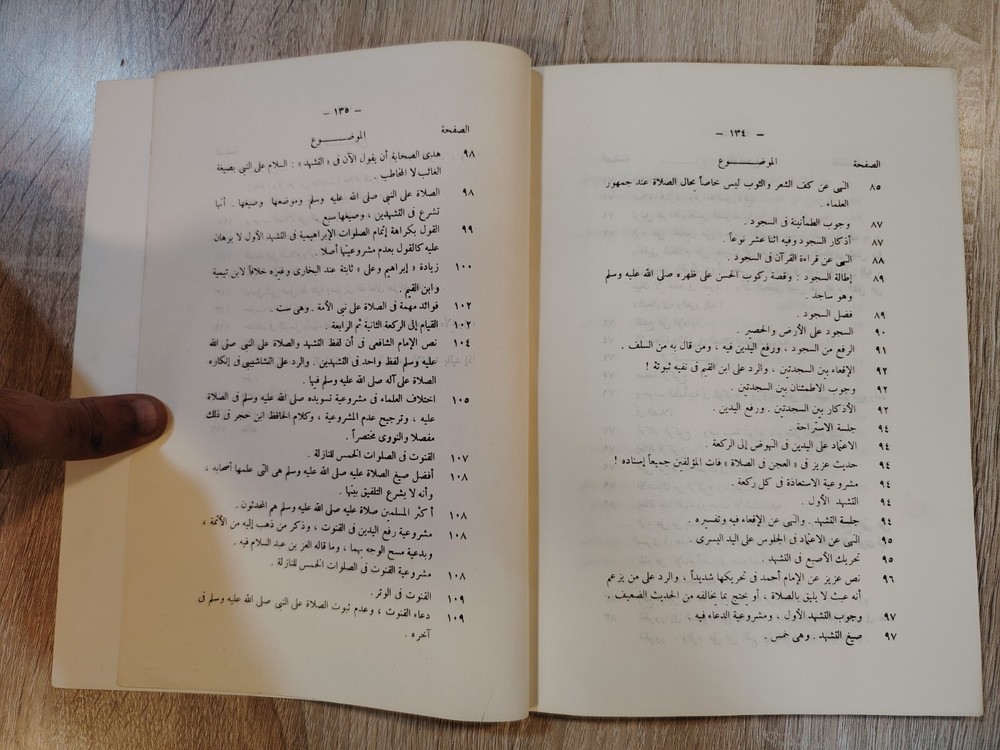 – ١٣٤ –
الموضوع الصفحة
٨٥ النهى عن كف الشعر والثوب ليس خاصاً بحال الصلاة عند جمهور
العلماء .
٨٧ وجوب الطمأنينة فى السجود .
٨٧ أذكار السجود وفيه اثنا عشر نوعاً .
٨٨ النهى عن قراءة القرآن فى السجود .
٨٩ إطالة السجود : وقصة ركوب الحسن على ظهره صلى الله عليه وسلم
وهو ساجد .
٨٩ فضل السجود .
٩٠ السجود على الأرض والحصير .
٩١ الرفع من السجود ، ورفع اليدين فيه ، ومن قال به من السلف .
٩٢ الإقعاء بين السجدتين ، والرد على ابن القيم فى نفيه ثبوتة !
٩٢ وجوب الاطمئنان بين السجدتين .
٩٢ الأذكار بين السجدتين . ورفع اليدين .
٩٤ جلسة الاستراحة .
٩٤ الاعتماد على اليدين فى النهوض إلى الركعة .
٩٤ حديث عزيز فى « العجن فى الصلاة » فات المؤلفين جميعاً إسناده !
٩٤ مشروعية الاستعاذة فى كل ركعة .
٩٤ التشهد الأول .
٩٤ جلسة التشهد . والنهى عن الإقعاء فيه وتفسيره .
٩٥ النهى عن الاعتماد فى الجلوس على اليد اليسرى .
٩٥ تحريك الأصبع فى التشهد .
٩٦ نص عزيز عن الإمام أحمد فى تحريكها شديداً ، والرد على من يزعم
أنه عبث لا يليق بالصلاة ، أو يحتج بما يخالفه من الحديث الضعيف .
٩٧ وجوب التشهد الأول ، ومشروعية الدعاء فيه .
٩٧ صيغ التشهد . وهى خمس .
– ١٣٥ –
الموضوع الصفحة
٩٨ هدى الصحابة أن يقول الآن فى « التشهد » : السلام على النبى بصيغة
الغائب لا المخاطب .
٩٨ الصلاة على النبى صلى الله عليه وسلم وموضعها وصيغها . أنها
تشرع فى التشهدين ، وصيغها سبع .
٩٩ القول بكراهة إتمام الصلوات الإبراهيمية فى التشهد الأول لا برهان
عليه كالقول بعدم مشروعيتها أصلا .
١٠٠ زيادة « إبراهيم وعلى » ثابتة عند البخارى وغيره خلافاً لابن تيمية
وابن القيم .
١٠٢ فوائد مهمة فى الصلاة على نبى الأمة . وهى ست .
١٠٢ القيام إلى الركعة الثانية ثم الرابعة .
١٠٤ نص الإمام الشافعى فى أن لفظ التشهد والصلاة على النبى صلى الله
عليه وسلم لفظ واحد فى التشهدين . والرد على النشاشيبى فى إنكاره
الصلاة على آله صلى الله عليه وسلم فيها .
١٠٥ اختلاف العلماء فى مشروعية تسويده صلى الله عليه وسلم فى الصلاة
عليه ، وترجيح عدم المشروعية ، وكلام الحافظ ابن حجر فى ذلك
مفصلا والنووى مختصراً .
١٠٧ القنوت فى الصلوات الخمس للنازلة .
١٠٨ أفضل صيغ الصلاة عليه صلى الله عليه وسلم هى التى علمها أصحابه ،
وأنه لا يشرع التلفيق بينها .
١٠٨ أكثر المسلمين صلاة عليه صلى الله عليه وسلم هم المحدثون .
١٠٨ مشروعية رفع اليدين فى القنوت ، وذكر من ذهب إليه من الأئمة ،
وبدعية مسح الوجه بهما ، وما قاله العز بن عبد السلام فيه .
١٠٨ مشروعية القنوت فى الصلوات الخمس للنازلة .
١٠٩ القنوت فى الوتر .
١٠٩ دعاء القنوت ، وعدم ثبوت الصلاة على النبى صلى الله عليه وسلم فى
آخره .